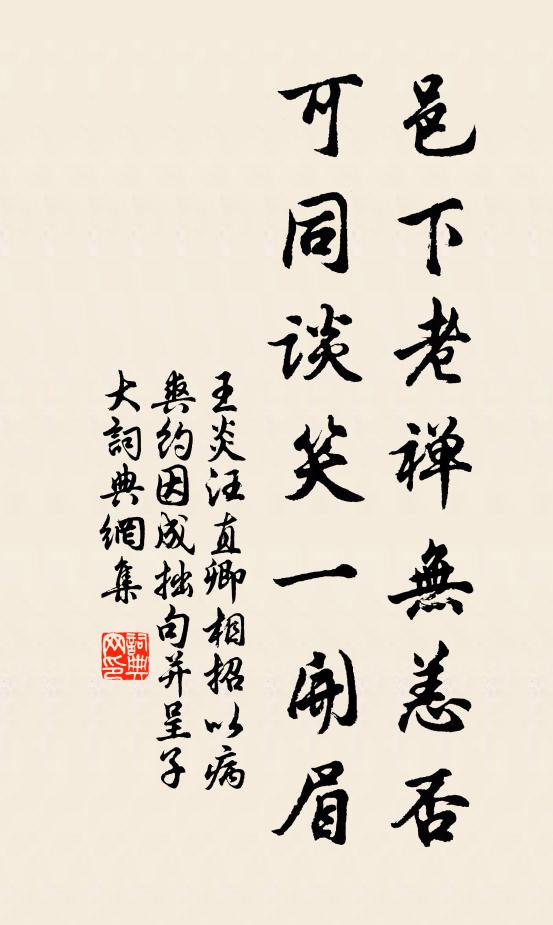 邑下老禅無恙否
可同談笑一開眉
王炎汪直卿相招以病
爽約因成拙句并呈子
大詞典網集
詞典网印